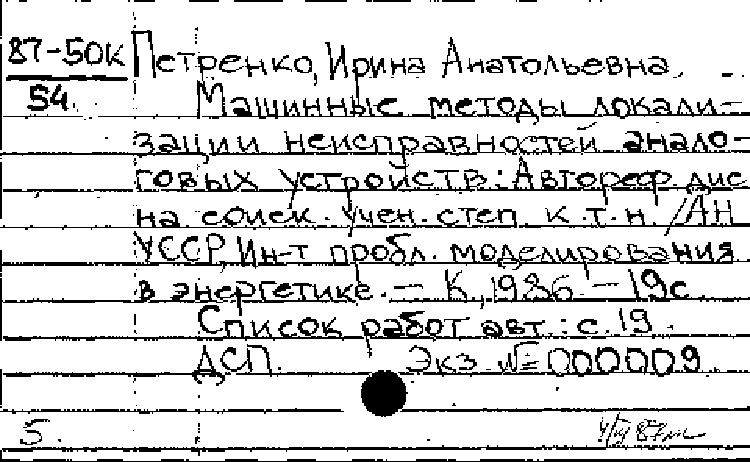 87-50К Петренко, Ирина Анатольевна.
54. Машинные методы локали-
зации неисправностей анало-
говых устройств: Автореф. дис
на соиск. учен. степ. к. т. н. /АН
УССР, Ин-т пробл. моделирования
в энергетике. — К., 1986. — 19с
Список работ авт.: с. 19.
ДСП. Экз. №000009
5. 87